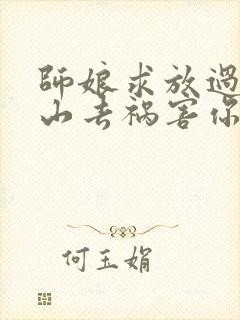 師娘求放過
山去禍害你
何玉娟